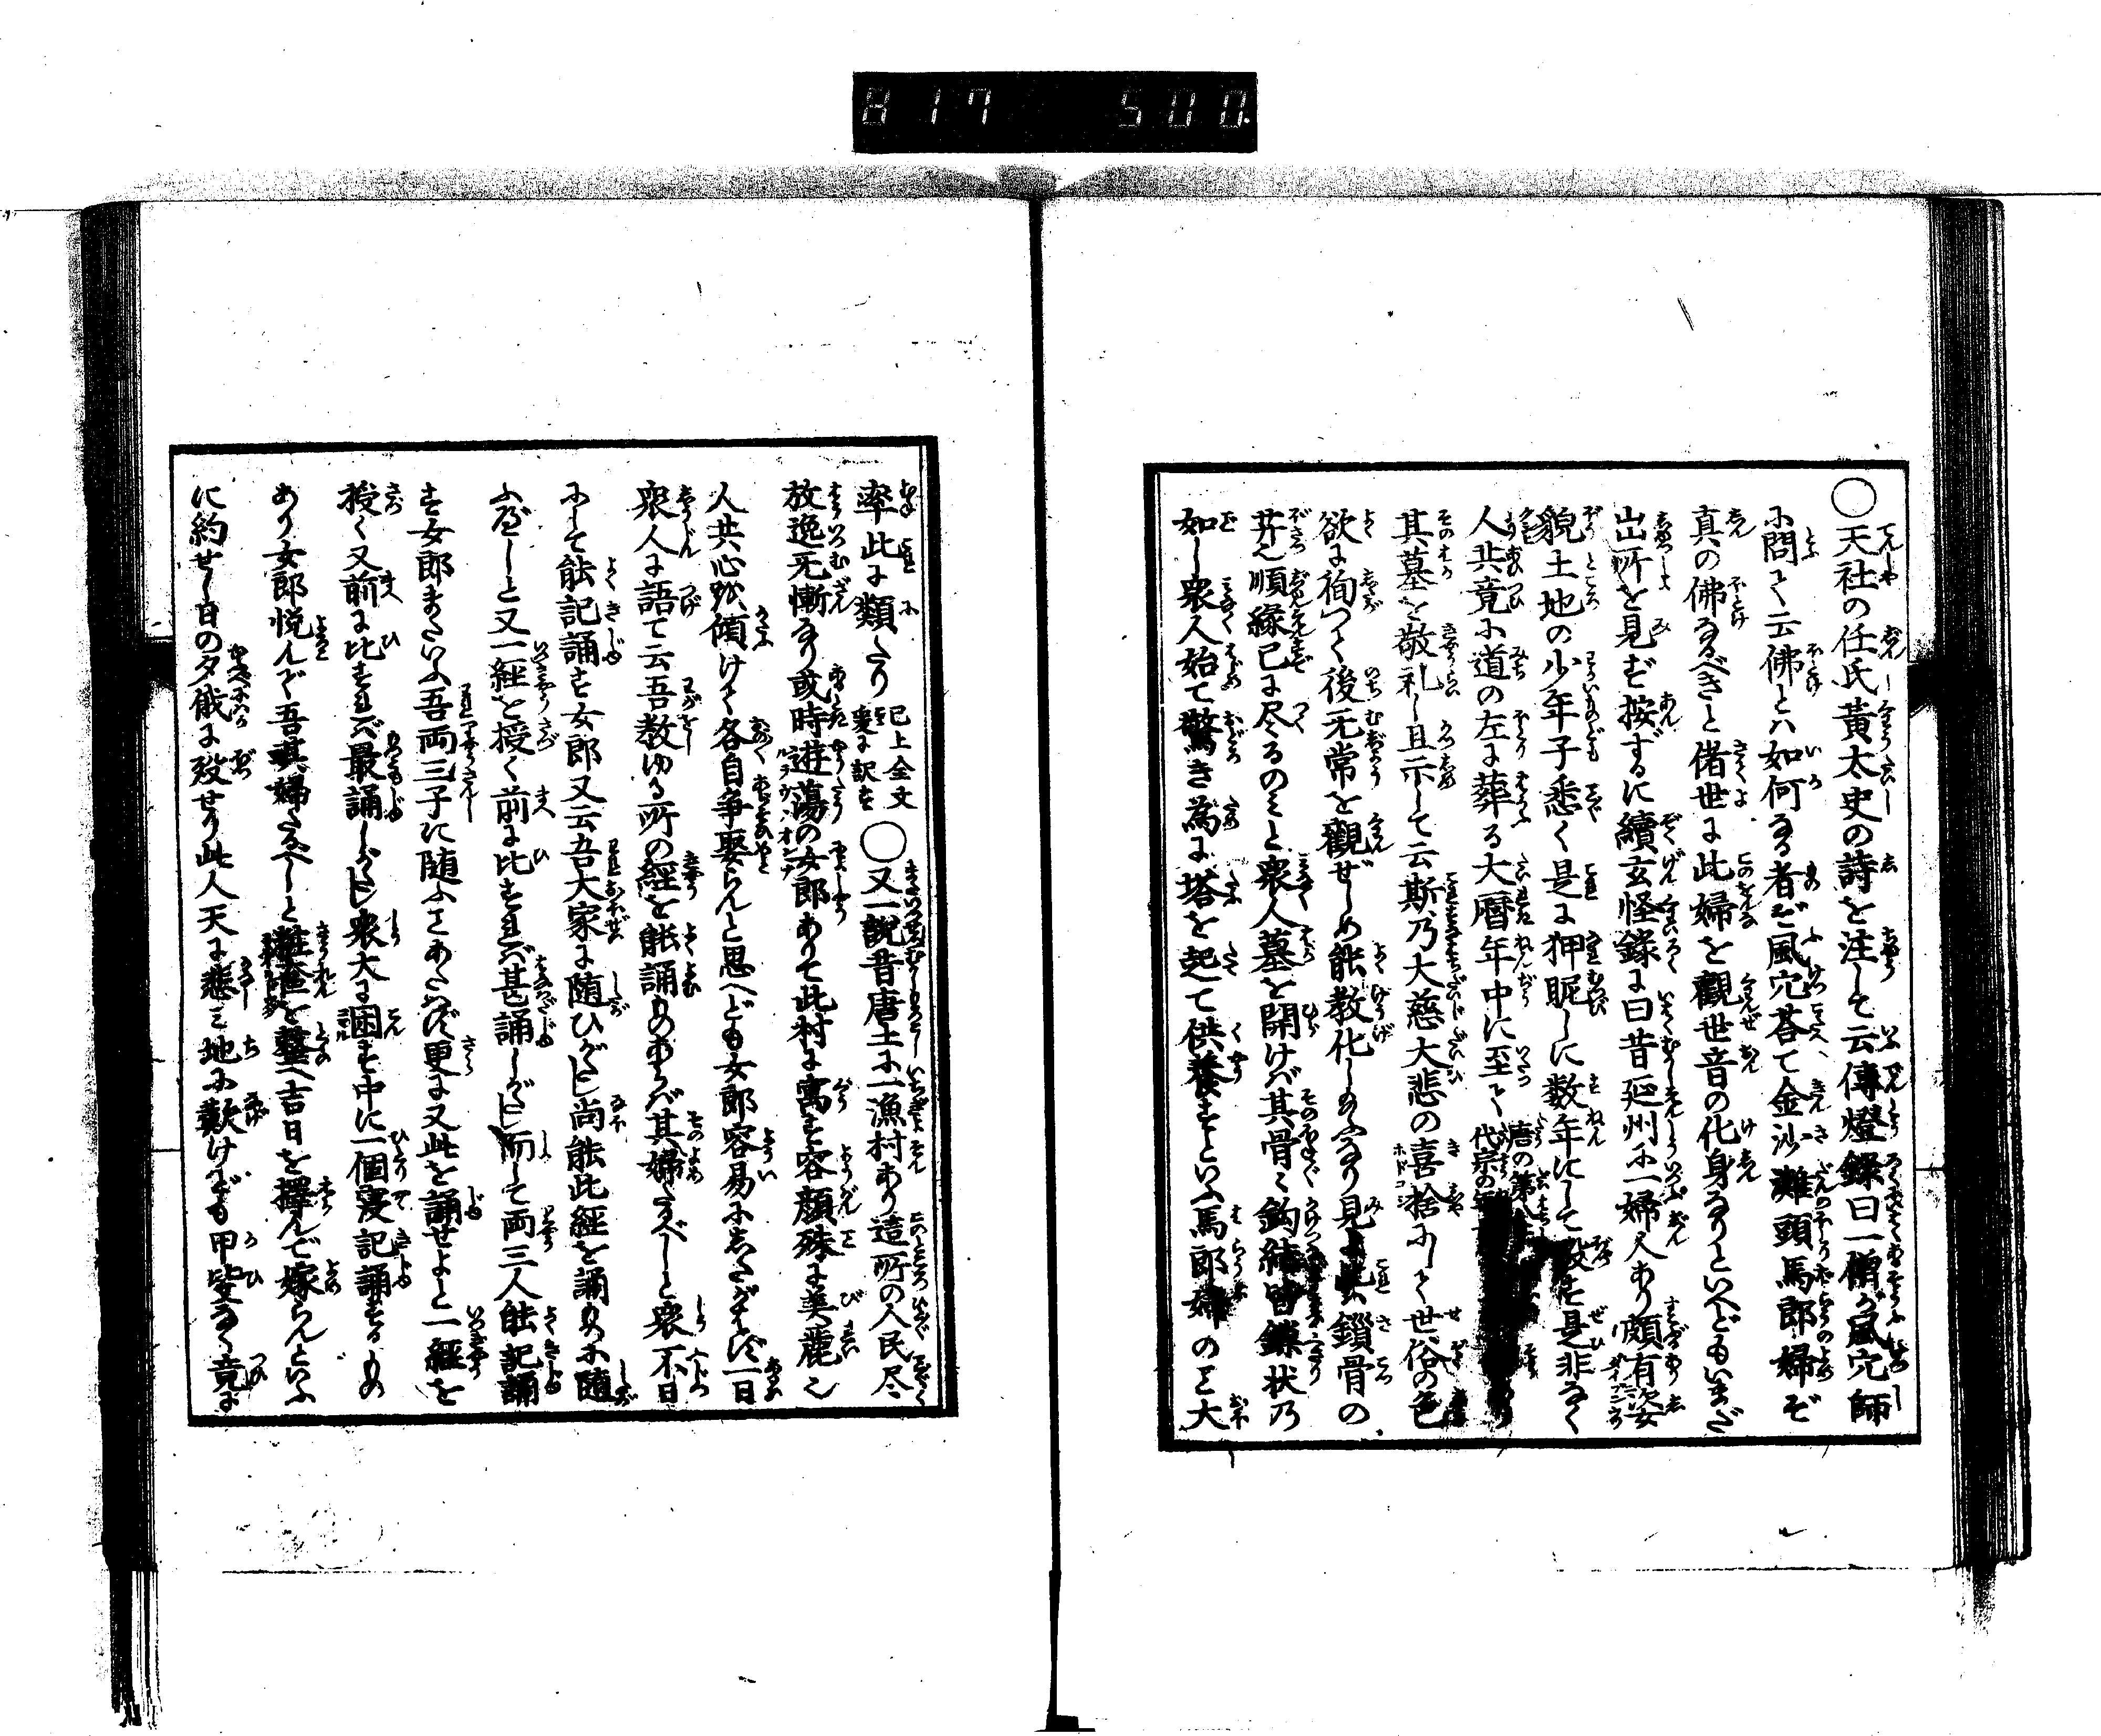 817 500
○天社の任氏黄太史の詩を注して云傳燈録曰一僧が風穴師
に問て云佛とは如何なる者ぞ風穴荅て金沙灘頭馬郎婦ぞ
真の佛なるべきと偖世に此婦を觀世音の化身なりといへどもいまだ
出所を見ず按ずるに續玄怪録に曰昔延州に一婦人あり頗有姿
貌土地の少年子悉く是に狎昵しに数年にして歿す是非なく
人共竟に道の左に葬る大暦年中に至て唐の
代宗の
其墓を敬礼し且示して云斯乃大慈大悲の喜捨にして世俗の色
欲に徇つく後无常を觀ぜしめ能教化しめふなり見よ其鎖骨の
井也順縁已に尽るのミと衆人墓を開けバ其骨々鈎結皆鎖状乃
如し衆人始て驚き為に塔を起て供養すといふ馬郎婦のミ大
率此に類たり已上全文
爰に訳す○又一説昔唐土に一漁村あり這所の人民尽く
放逸无慚なり或時遊蕩の女郎ありて此村に寓す容顔殊に美麗也
人共心窃傾けて各自争娶らんと思へども女郎容易にしたがはず一日
衆人に語て云吾教ゆる所の經を能誦ものあらバ其婦たるべしと衆不日
にして能記誦す女郎又云吾大家に随ひがたし尚能此經を誦ものに随
ふべしと又一經を授く前に比すれバ甚誦しがたし而して両三人能記誦
す女郎またいふ吾両三子に随ふことあたハず更に又此を誦せよと一經を
授く又前に比すれバ最誦しがたし衆大に困す中に一個寔記誦するもの
あり女郎悦んで吾其婦たるべしと粧奩を整へ吉日を擇んで嫁らんといふ
に約せし日の夕俄に歿せり此人天に悲ミ地に歎けども甲斐なく竟に